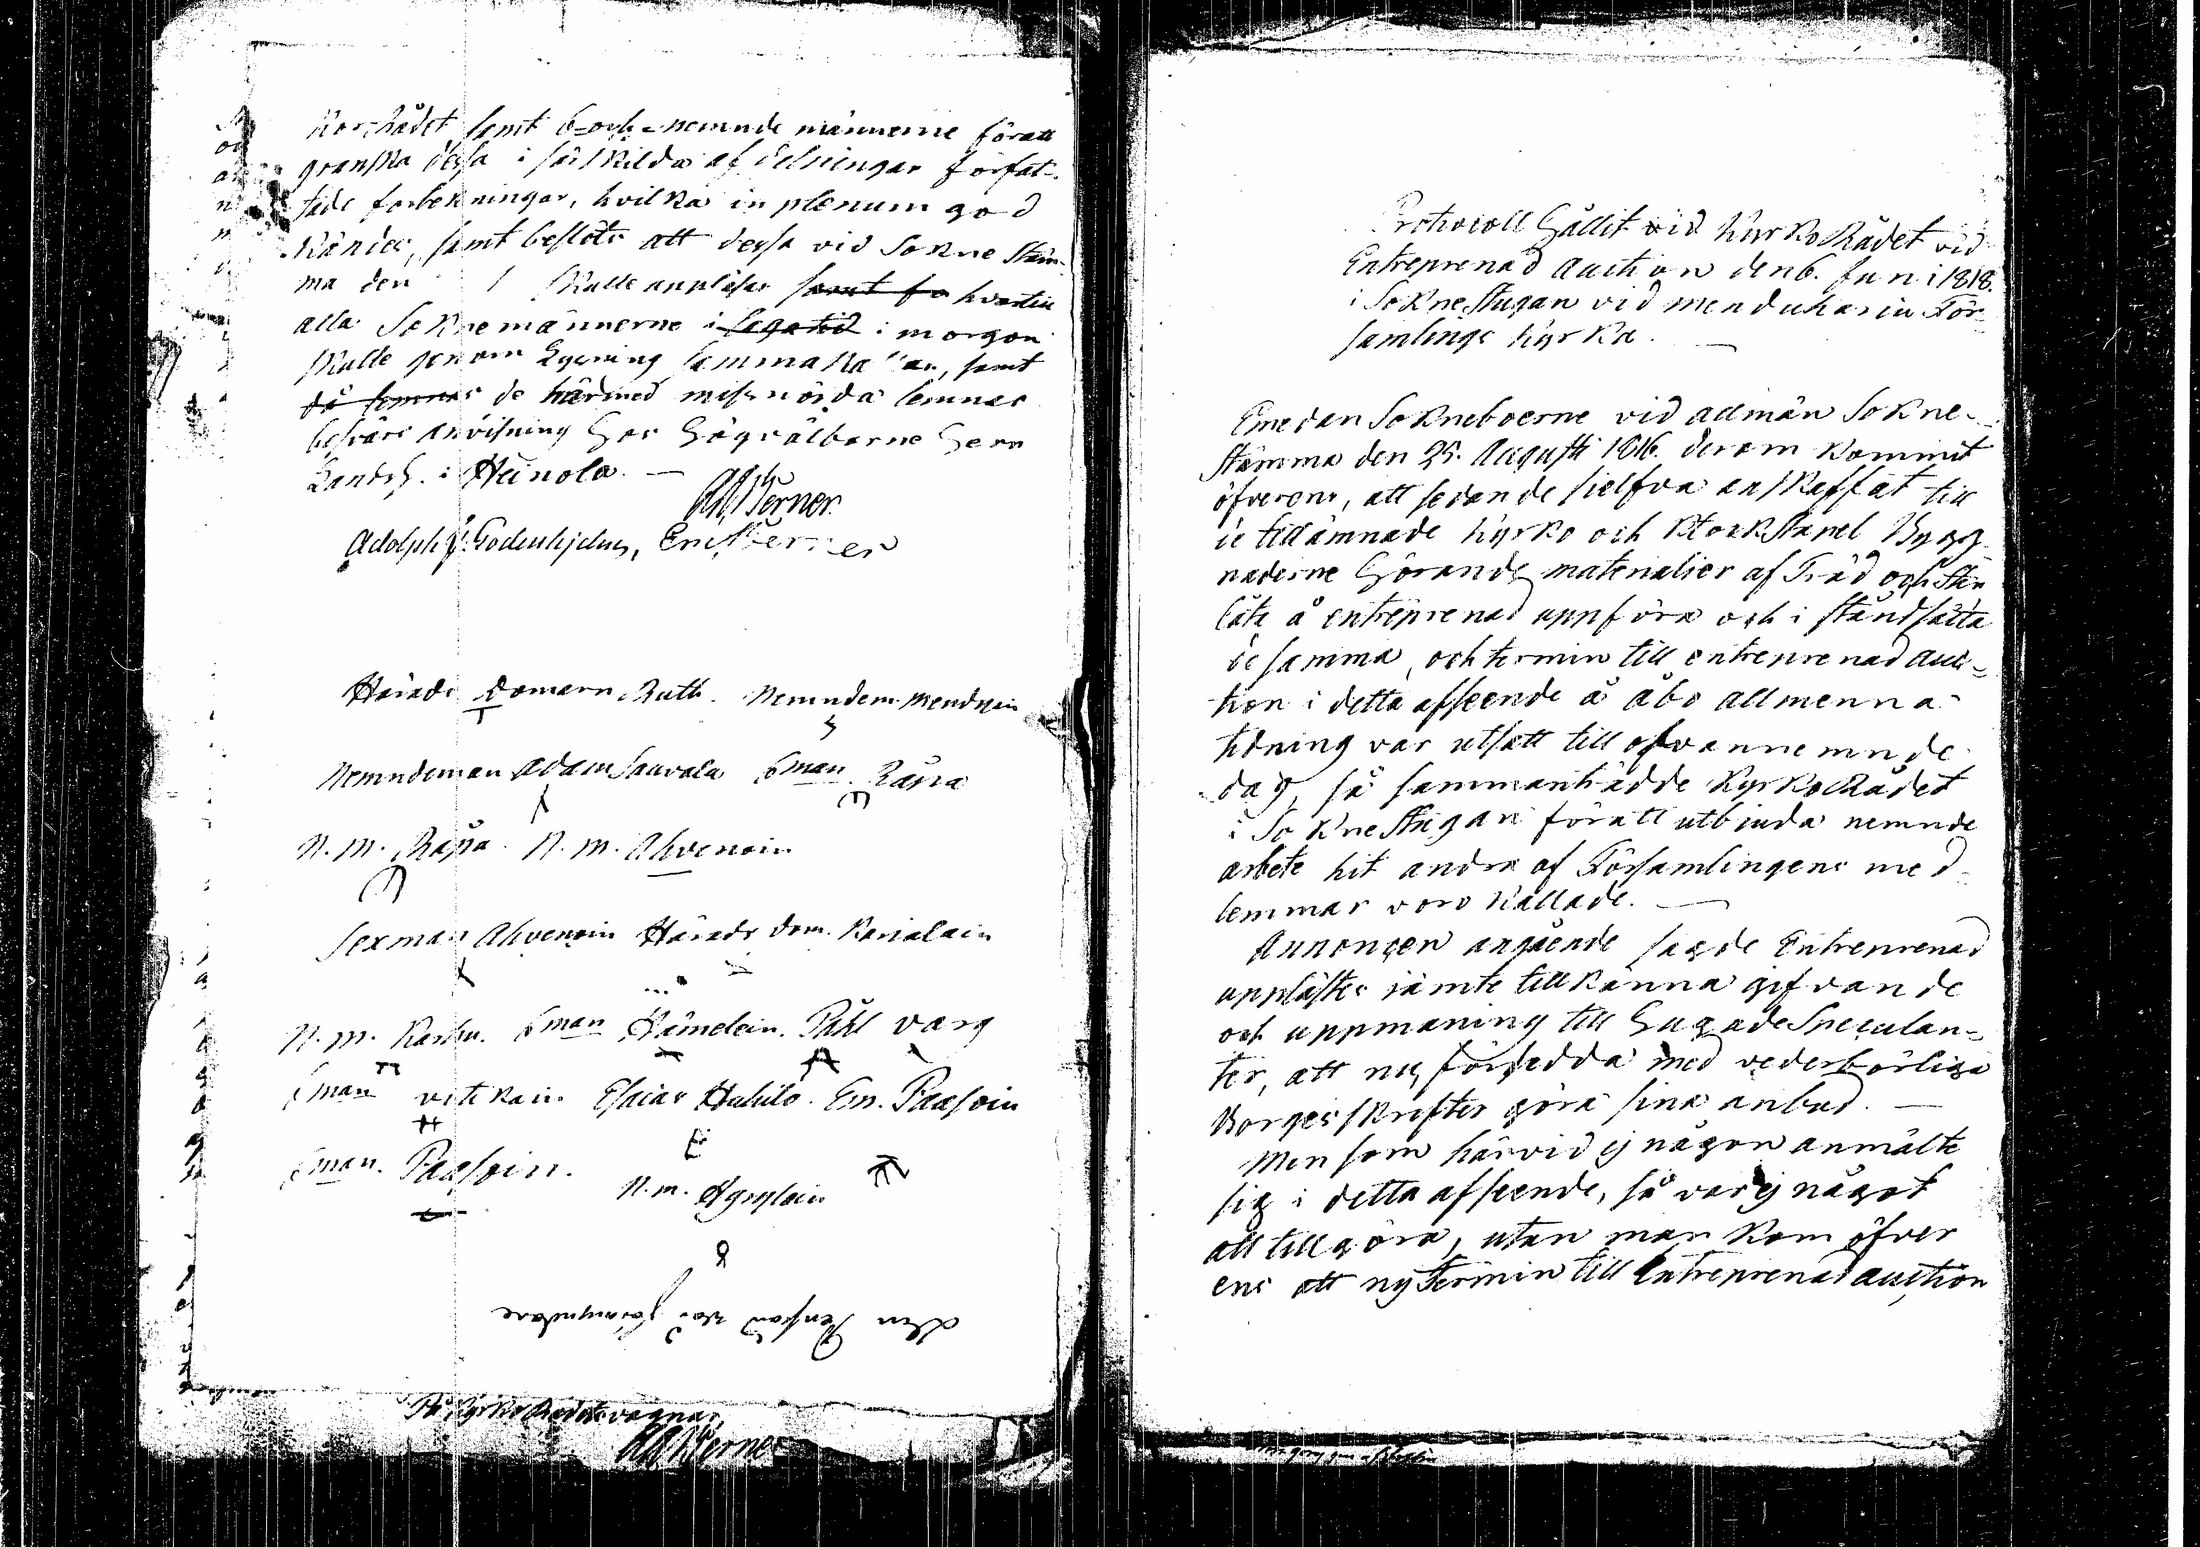 KyrcRådet samt 6 och nemnde männerne föratt
granska dessa i särskilda afdelningar författ-
tade forteckningar, hvilka in plenum god
kändes, samt beslöts att dessa vid Sokne Stäm-
ma den / skulle uppläsas samt fo hvartill
alla Soknemännerne i i morgon
skulle genom lysning samman kallas, samt
då lemnas de härmed missnöjda lemnas
besvärs anvisning Hos Högvälborne Herr
Landsh. i Heinola. —
Ad. Werner
Adolph F. Godenhjelm, Eric Werner
Härads domarn Ruth. Nemndem. Mendyin
Nemndeman Adam Sauvala 6man Räpa
N. M. Räpa. N. M. Ahvenoin
Sexman Ahvenoin Härads dom. Karialain
N. M. Karhu. 6man Hämelein. Påhl varg
6man vitikain Esaias Huhilo. Em. Paasoin
6man. Paasoin. N. m. Hymylain
På KyrkoRådets vägnar,
Ad. Werner
Protocoll Hållit vid KyrkoRådet vid
Entreprenad Auction den 6. Juni 1818.
i SokneStugan vid Menduharju För-
samlings kyrka. —
Emedan Sokneboerne vid allmän Sokne-
Stämma den 25. Augusti 1816. derom kommit
öfverens, att sedan de sielfva anskaffat till
de tillämnade kyrko och KlockStapel Bygg-
naderne Hörande materialier af Träd och Sten
låta å entreprenad uppföra och i ståndsätta
de samma, och termin till entreprenad auc-
tion i detta afseende å Åbo Allmenna
tidning var utsatt till ofvannemnde
dag, så sammanträdde KyrkoRådet
i SokneStugan föratt utbiuda nemnde
arbete hit andra af Församlingens med-
lemmar voro kallade. —
Annoncen angående sagde Entreprenad
upplästes jämte tillkänna gifvande
och uppmaning till Hugade Speculan-
ter, att nu, försedda med vederbörliga
Borges skrifter göra sina anbud. —
Men som härvid ej någon anmälte
sig i detta afseende, så var ej något
att tillgöra, utan man kom öfver
ens att ny Termin till Entreprenad auction